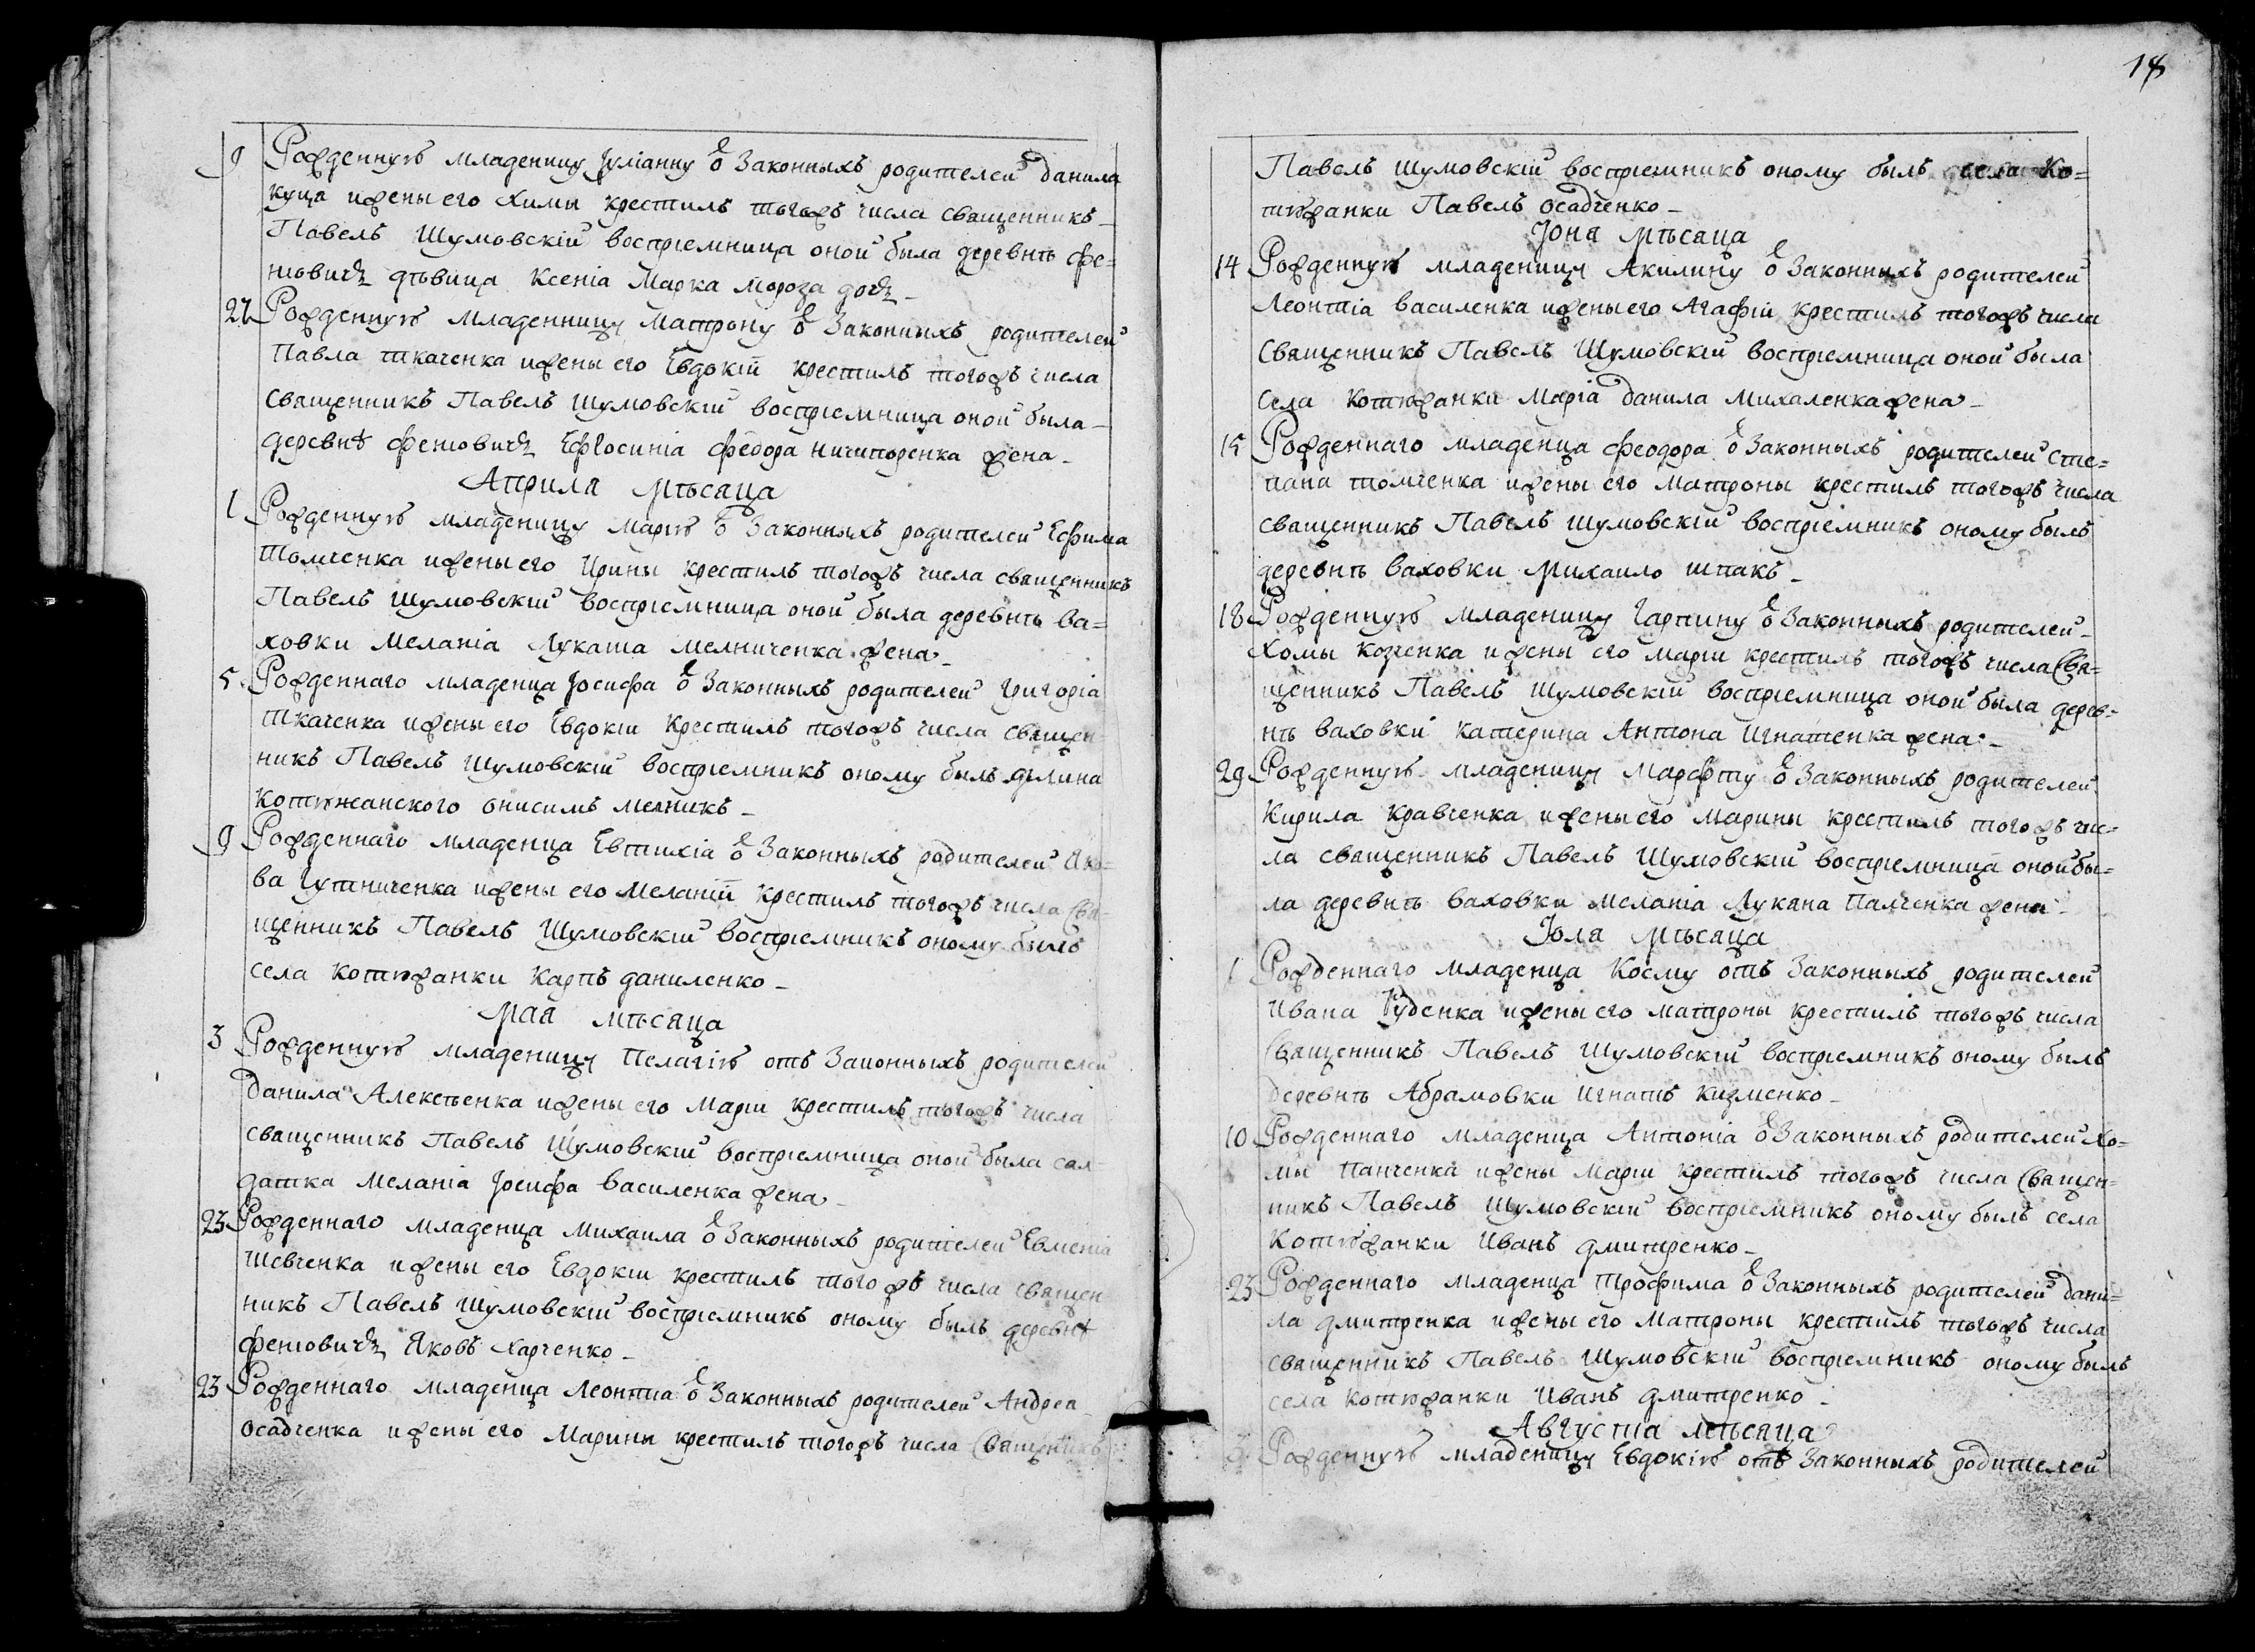 9 Рожденную младеницу Іуліанну ѿ Законныхъ родителей данила
куца и жены его Химы крестилъ тогожъ числа священникъ
Павелъ Шумовскій воспріемница оной была деревнѣ фе=
нювичъ дѣвица Ксенія Марка Мороза дочъ
Рожденную Младенницу Матрону ѿ Законныхъ родителей
Павла ткаченка и жены его Евдокіи крестилъ тогожъ числа
священникъ Павелъ Шумовскій воспріемница оной была
деревнѣ фенювичъ Ефросинія Федора Ничипоренка жена
Априла Мѣсяца
1 Рожденную младеницу Марію ѿ Законныхъ родителей Ефима
Томченка и жены его Ирины крестилъ тогожъ числа священникъ
Павелъ Шумовскій воспріемница оной была деревнѣ Ва=
ховки Меланія Лукаша мелниченка жена
5 Рожденнаго младенца Іосифа ѿ Законныхъ родителей Григорія
Ткаченка и жены его Евдокіи крестилъ тогожъ числа священ
никъ Павелъ Шумовскій воспріемникъ оному былъ млина
Котюжанского Онисимъ Мелникъ
9 Рожденнаго младенца Евтихіа ѿ Законныхъ родителей Яко=
ва Гутниченка и жены его Меланіи крестилъ тогожъ числа Свя=
щенникъ Павелъ Шумовскій воспріемникъ оному былъ
села котюжанки Карпъ даниленко
Мая мѣсяца
3 Рожденную младеницу Пелагію отъ Законныхъ родителей
данила Алексѣенка и жены его Маріи крестилъ тогожъ числа
священникъ Павелъ Шумовскій воспріемница оной была сал=
датка Меланіа Іосифа Василенка жена
23 Рожденнаго младенца Михаила ѿ Законныхъ родителей Евменіа
Шевченка и жены его Евдокіи крестилъ тогожъ числа священ
никъ Павелъ Шумовскій воспріемникъ оному былъ деревнѣ
фенювичъ Яковъ Харченко
23 Рожденнаго младенца Леонтиа ѿ Законныхъ родителей Андрея
осадченка и жены его Марины крестилъ тогожъ числа священникъ
Павелъ Шумовскій воспріемникъ оному былъ села Ко=
тюжанки Павелъ осадченко
Іюня Мѣсяца
14 Рожденную младеницу Акилину ѿ Законныхъ родителей
Леонтіа василенка и жены его Агафіи крестилъ тогожъ числа
Священникъ Павелъ Шумовскій воспріемница оной была
села котюжанки Маріа данила Михаленка жена
15 Рожденнаго младенца Феодора ѿ Законныхъ родителей Сте=
пана томченка и жены его Матроны крестилъ тогожъ числа
священникъ Павелъ Шумовскій воспріемникъ оному былъ
деревнѣ ваховки Михаило шпакъ
18 Рожденную младеницу Гарпину ѿ Законныхъ родителей
Хомы и жены его Маріи крестилъ тогожъ числа Свя=
щенникъ Павелъ Шумовскій воспріемница оной была дерев=
нѣ ваховки Катерина Антона Игнатенка жена
29 Рожденную младеницу Марфту ѿ Законныхъ родителей
Кирила Кравченка и жены его Марины крестилъ тогожъ чис=
ла священникъ Павелъ Шумовскій воспріемница оной бы=
ла деревнѣ ваховки Меланіа Лукяна Палченка жена
Іюля Мѣсяца
1 Рожденнаго младенца Косму отъ Законныхъ родителей
Ивана Руденка и жены его матроны крестилъ тогожъ числа
Священникъ Павелъ Шумовскій воспріемникъ оному былъ
деревнѣ Абрамовки Игнатъ Кизменко
10 Рожденнаго младенца Антоніа ѿ Законныхъ родителей Хо=
мы Панченка и жены Маріи крестилъ тогожъ числа Священ=
никъ Павелъ Шумовскій воспріемникъ оному былъ села
Котюжанки Иванъ дмитренко
23 Рожденнаго младенца Трофима ѿ Законныхъ родителей дани=
ла дмитренка и жены его Матроны крестилъ тогожъ числа
священникъ Павелъ Шумовскій воспріемникъ оному былъ
села котюжанки Иванъ дмитренко
Августа мѣсяца
Рожденную младеницу Евдокію отъ Законныхъ родителей